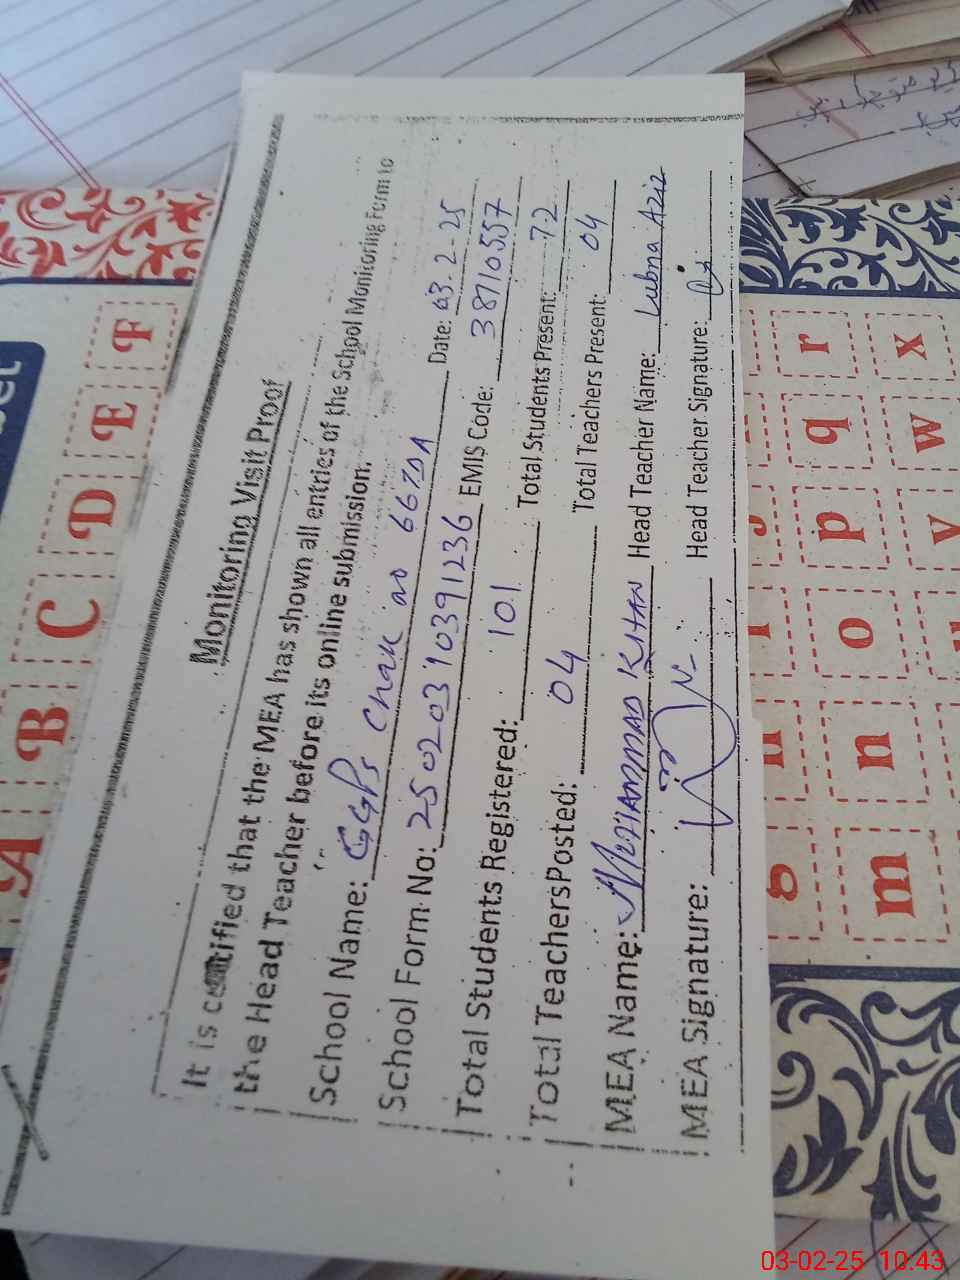 Monitoring Visit Proof
It is certified that the MEA has shown all entries of the School Monitoring Form to
the Head Teacher before its online submission.
School Name: GGPS Chak no 667DA Date: 03-2-25
School Form No: 2502039103 91236 EMIS Code: 38710557
Total Students Registered: 101 Total Students Present: 72
Total TeachersPosted: 04 Total Teachers Present: 04
MEA Name: MUHAMMAD KHAN Head Teacher Name: Lubna Aziz
MEA Signature: Head Teacher Signature:
A B C D E F
g r
m n o p q
w x
03-02-25 10:43